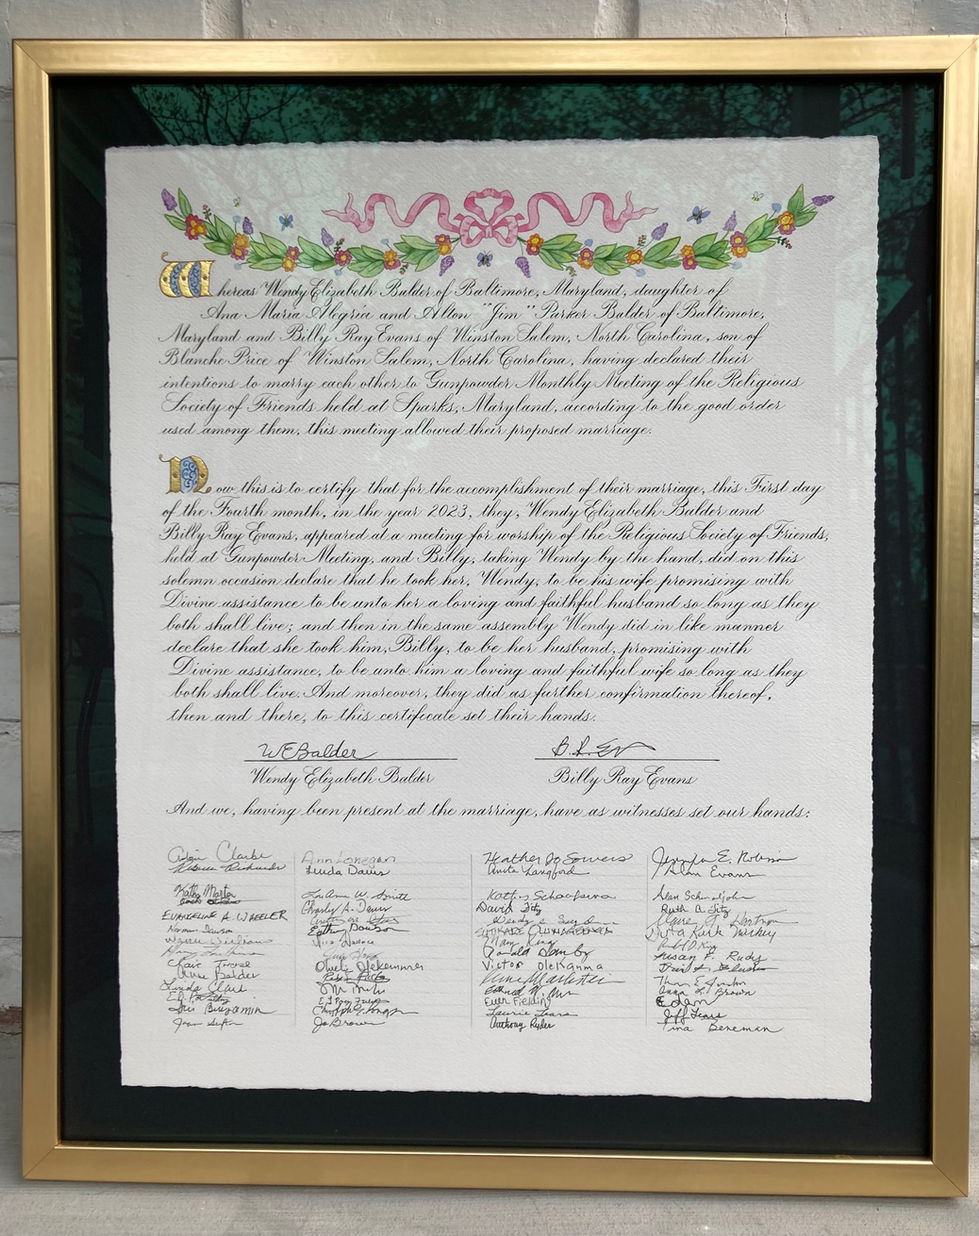 Whereas Wendy Elizabeth Balder of Baltimore, Maryland, daughter of
Ana Maria Alegria and Alton "Jim" Parker Balder of Baltimore,
Maryland and Billy Ray Evans of Winston Salem, North Carolina, son of
Blanche Price of Winston Salem, North Carolina, having declared their
intentions to marry each other to Gunpowder Monthly Meeting of the Religious
Society of Friends held at Sparks, Maryland, according to the good order
used among them, this meeting allowed their proposed marriage.
Now this is to certify that for the accomplishment of their marriage, this First day
of the Fourth month, in the year 2023, they, Wendy Elizabeth Balder and
Billy Ray Evans, appeared at a meeting for worship of the Religious Society of Friends,
held at Gunpowder Meeting, and Billy, taking Wendy by the hand, did on this
solemn occasion declare that he took her, Wendy, to be his wife promising with
Divine assistance to be unto her a loving and faithful husband so long as they
both shall live; and then in the same assembly Wendy did in like manner
declare that she took him, Billy, to be her husband, promising with
Divine assistance, to be unto him a loving and faithful wife so long as they
both shall live. And moreover, they did as further confirmation thereof,
then and there, to this certificate set their hands.
WEBalder
B. R. Ev
Wendy Elizabeth Balder
Billy Ray Evans
And we, having been present at the marriage, have as witnesses set our hands:
Clarke
Kathy
EVANGELINE A WHEELER
Anne Balder
Linda Clark
Benjamin
Ann Lonegan
Linda Davis
LuAnn W.
Charles A. Davis
Jo Brown
Heather Jo Sowers
Anita Langford
David Fitz
Mary King
Victor Olekanma
Ellen Fielding
Laurie Fears
Anthony Ryder
Jennifer E. Robinson
Alan Evans
Ruth A. Fitz
Susan F. Rudy
Anna L. Brown
Edem
Jeff Fears
Tina Beneman